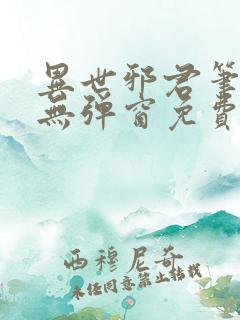 異世邪君筆
無彈窗免費
西穆尼奇
未經同意禁止轉載